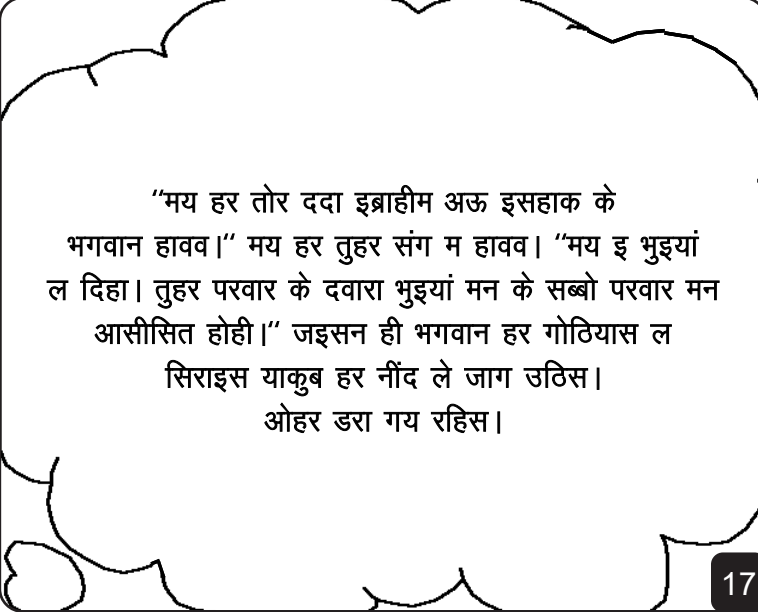 “मय हर तोर ददा इब्राहीम अऊ इसहाक के
भगवान हावव।“ मय हर तुहर संग म हावव। “मय इ भुइयां
ल दिहा। तुहर परवार के दवारा भुइयां मन के सब्बो परवार मन
आसीसित होही।“ जइसन ही भगवान हर गोठियास ल
सिराइस याकुब हर नींद ले जाग उठिस।
ओहर डरा गय रहिस।
17